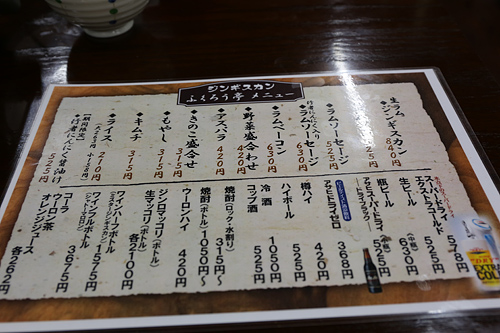 ジンギスカン
ふくろう亭 メニュー
◆生ラム
ジンギスカン 840円
◆ラムソーセージ 525円
行者にんにく入り
◆ラムソーセージ 630円
◆ラムベーコン 630円
◆野菜盛合わせ 420円
◆アスパラ 420円
◆きのこ盛合せ 315円
◆もやし 315円
◆キムチ 315円
◆ライス 210円
【期間限定】
◆行者にんにく醤油漬け 525円
スーパードライ
エクストラコールド 578円
生ビール 630円
瓶ビール 525円
アサヒドライゼロ 368円
樽ハイ 420円
ハイボール 525円
冷酒 1050円
コップ酒 525円
焼酎(ロック・水割り) 315円〜
焼酎(ボトル) 1050円〜
ウーロンハイ 420円
ジンロマッコリ(ボトル)
生マッコリ(ボトル) 各2100円
ワインハーフボトル 1575円
ワインフルボトル 3675円
コーラ
ウーロン茶
オレンジジュース 各262円